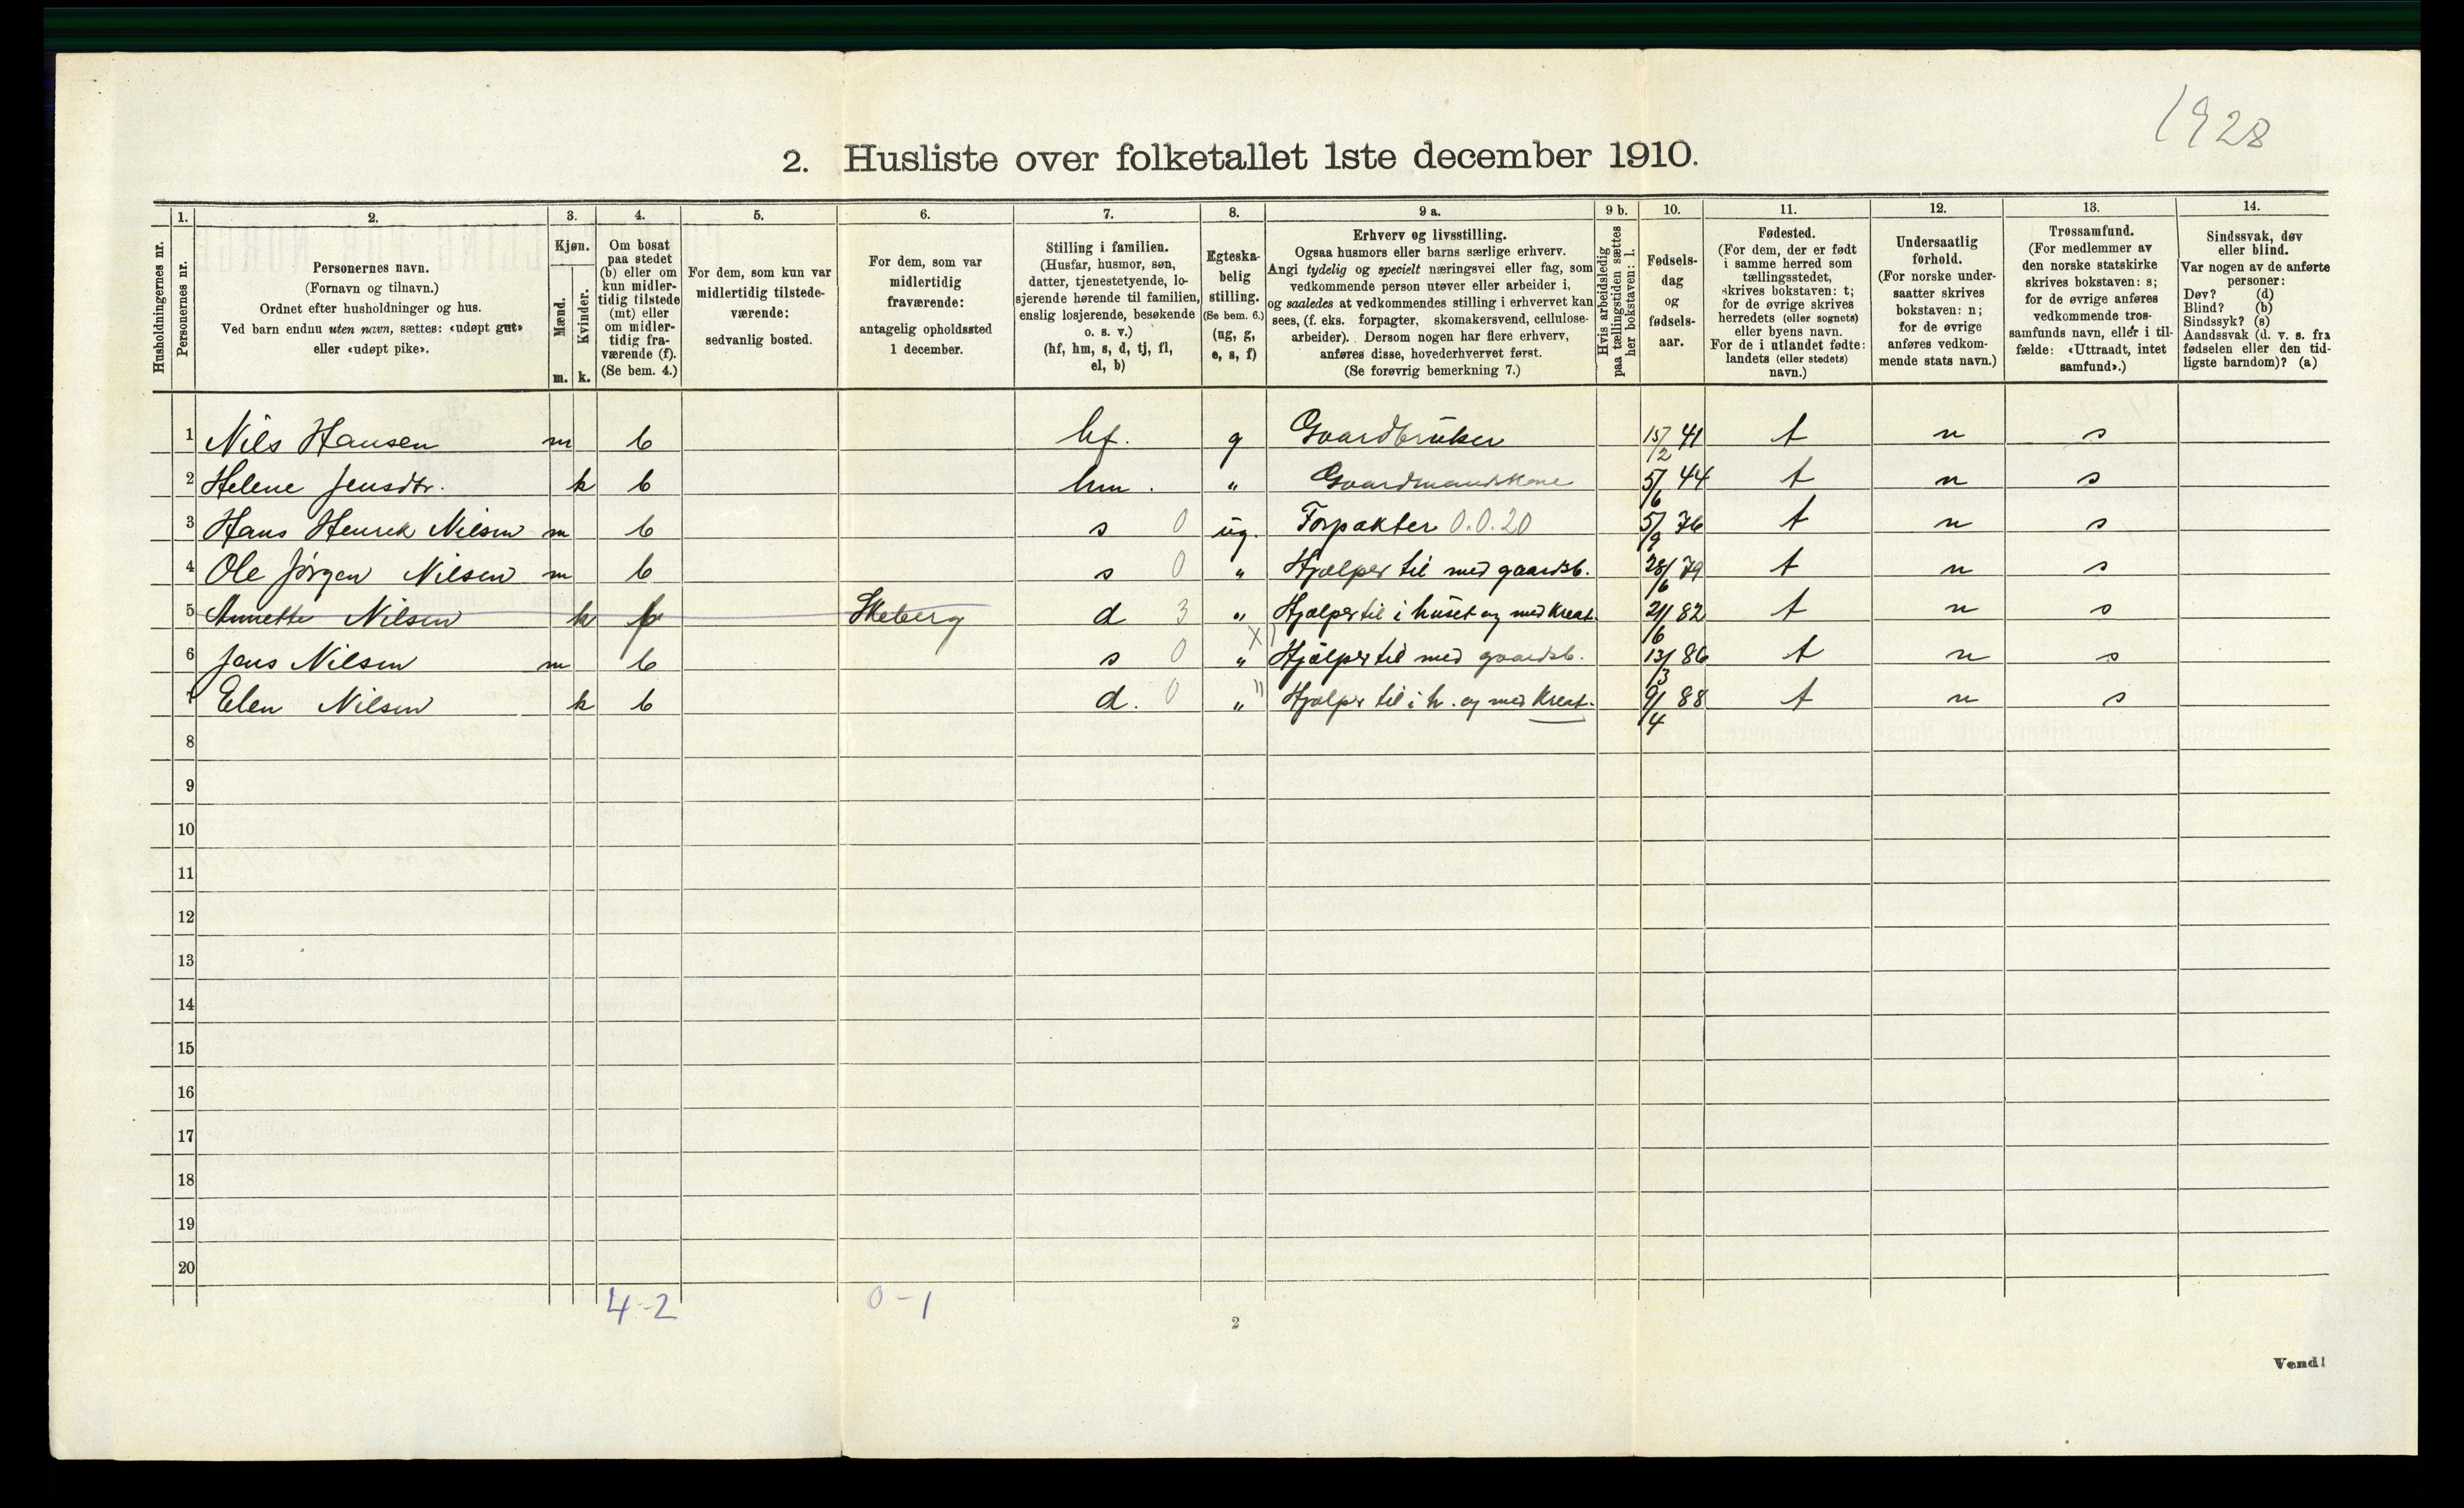 1928
2. Husliste over folketallet 1ste december 1910.
Husholdningernes nr.
1.
Personernes nr.
2.
Personernes navn.
(Fornavn og tilnavn.)
Ordnet efter husholdninger og hus.
Ved barn endnu uten navn, sættes: «udøpt gut»
eller «udøpt pike».
3.
Kjøn.
Mænd.
Kvinder.
m. k.
4.
Om bosat
paa stedet
(b) eller om
kun midler-
tidig tilstede
(mt) eller
om midler-
tidig fra-
værende (f).
(Se bem. 4.)
5.
For dem, som kun var
midlertidig tilstede-
værende:
sedvanlig bosted.
6.
For dem, som var
midlertidig
fraværende:
antagelig opholdssted
1 december.
7.
Stilling i familien.
(Husfar, husmor, søn,
datter, tjenestetyende, lo-
sjerende hørende til familien,
enslig losjerende, besøkende
o. s. v.)
(hf, hm, s, d, tj, fl,
el, b)
8.
Egteska-
belig
stilling.
(Se bem. 6.)
(ug, g,
e, s, f)
9 a.
Erhverv og livsstilling.
Ogsaa husmors eller barns særlige erhverv.
Angi tydelig og specielt næringsvei eller fag, som
vedkommende person utøver eller arbeider i,
og saaledes at vedkommendes stilling i erhvervet kan
sees, (f. eks. forpagter, skomakersvend, cellulose-
arbeider). Dersom nogen har flere erhverv,
anføres disse, hovederhvervet først.
(Se forøvrig bemerkning 7.)
9 b.
Hvis arbeidsledig
paa tællingstiden sættes
her bokstaven: l.
10.
Fødsels-
dag
og
fødsels-
aar.
11.
Fødested.
(For dem, der er født
i samme herred som
tællingsstedet,
skrives bokstaven: t;
for de øvrige skrives
herredets (eller sognets)
eller byens navn.
For de i utlandet fødte:
landets (eller stedets)
navn.)
12.
Undersaatlig
forhold.
(For norske under-
saatter skrives
bokstaven: n;
for de øvrige
anføres vedkom-
mende stats navn.)
13.
Trossamfund.
(For medlemmer av
den norske statskirke
skrives bokstaven: s;
for de øvrige anføres
vedkommende tros-
samfunds navn, eller i til-
fælde: «Uttraadt, intet
samfund».)
14.
Sindssvak, døv
eller blind.
Var nogen av de anførte
personer:
Døv? (d)
Blind? (b)
Sindssyk? (s)
Aandssvak (d. v. s. fra
fødselen eller den tid-
ligste barndom)? (a)
1 Nils Hansen m b hf. g Gaardbruker 15/2 41 t n s
2 Helene Jensdtr. k b hm. " Gaardmandskone 5/6 44 t n s
3 Hans Henrik Nilsen m b s 0 ug. Forpakter 0.0.20 5/9 76 t n s
4 Ole Jörgen Nilsen m b s 0 " Hjælper til med gaardsb. 28/6 79 t n s
5 Annette Nilsen k f Skeberg d 3 " Hjælper til i huset og med Kreat. 21/6 82 t n s
6 Jens Nilsen m b s 0 " X) Hjælper til med gaardsb. 13/3 86 t n s
7 Elen Nilsen k b d. 0 " " Hjælper til i h. og med Kreat. 9/4 88 t n s
8
9
10
11
12
13
14
15
16
17
18
19
20
4-2 0-1
2
Vend!